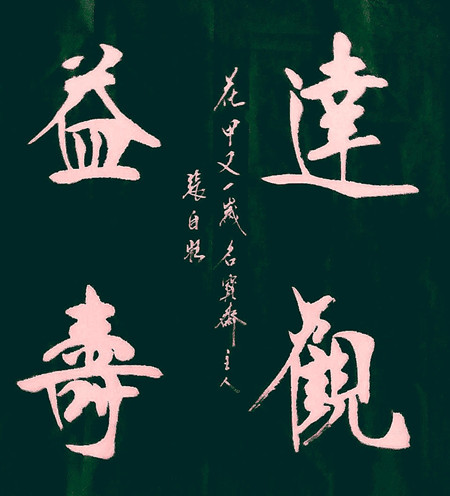 達觀
花甲又一歲名寶齋主人
張自
益壽